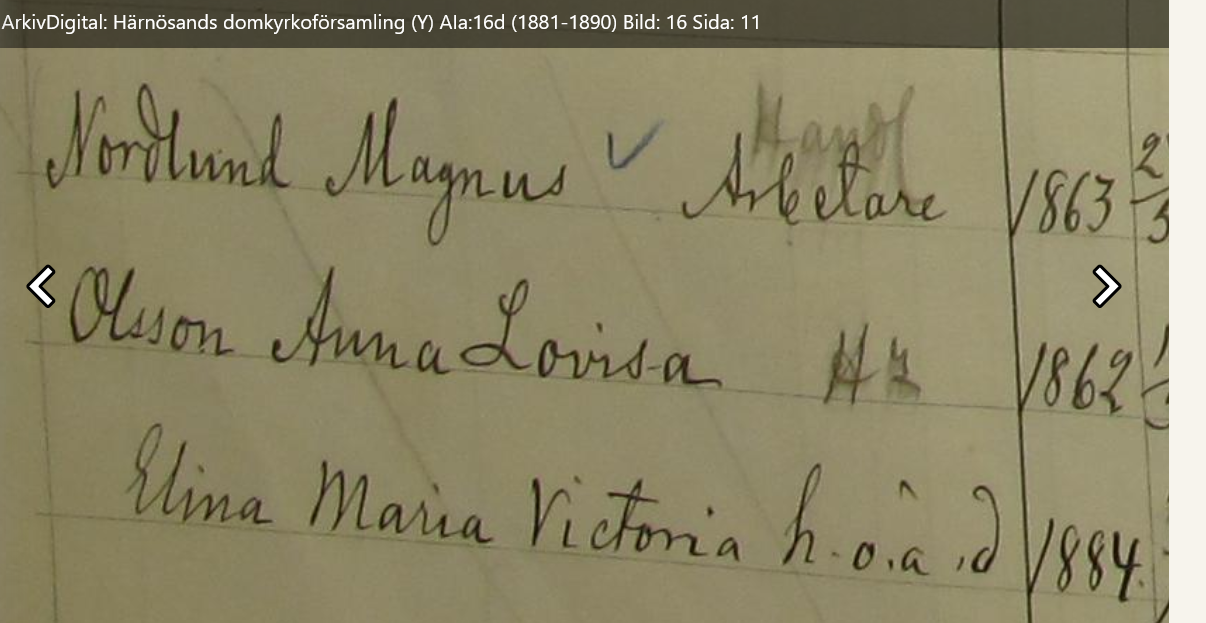 ArkivDigital: Härnösands domkyrkoförsamling (Y) AIa:16d (1881-1890) Bild: 16 Sida: 11
Handl
Nordlund Magnus Arbetare 1863
Olsson Anna Lovisa 1862
Elina Maria Victoria h.o.ä.d 1884.